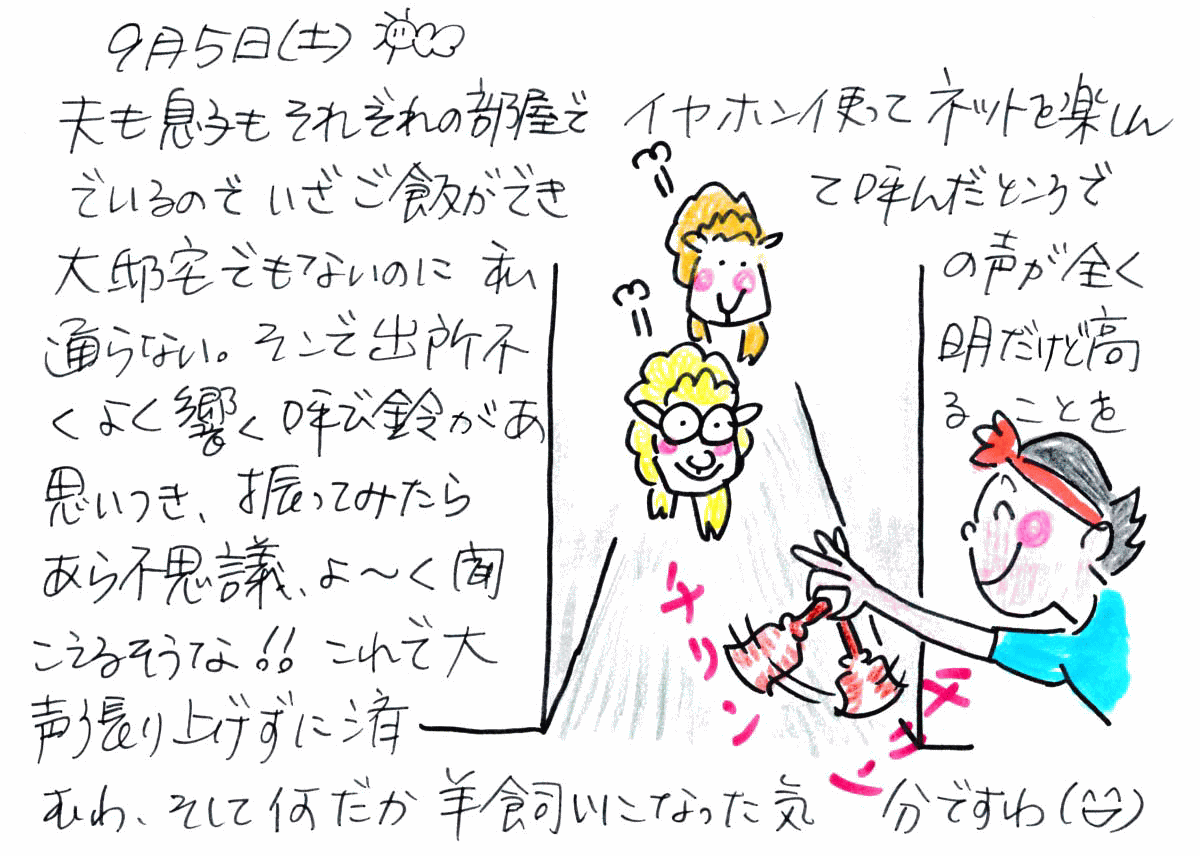 9月5日(土)
夫も息子もそれぞれの部屋で イヤホン使ってネットを楽しん
でいるので いざご飯ができ て呼んだところで
大邸宅でもないのに 私 の声が全く
通らない。そこで出所不 明だけど高
くよく響く呼び鈴があ ることを
思いつき、振ってみたら
あら不思議、よ〜く聞
こえるそうな!! これで大
声張り上げずに済
むわ、そして何だか 羊飼いになった気 分ですわ(^^)
チリン
チリン